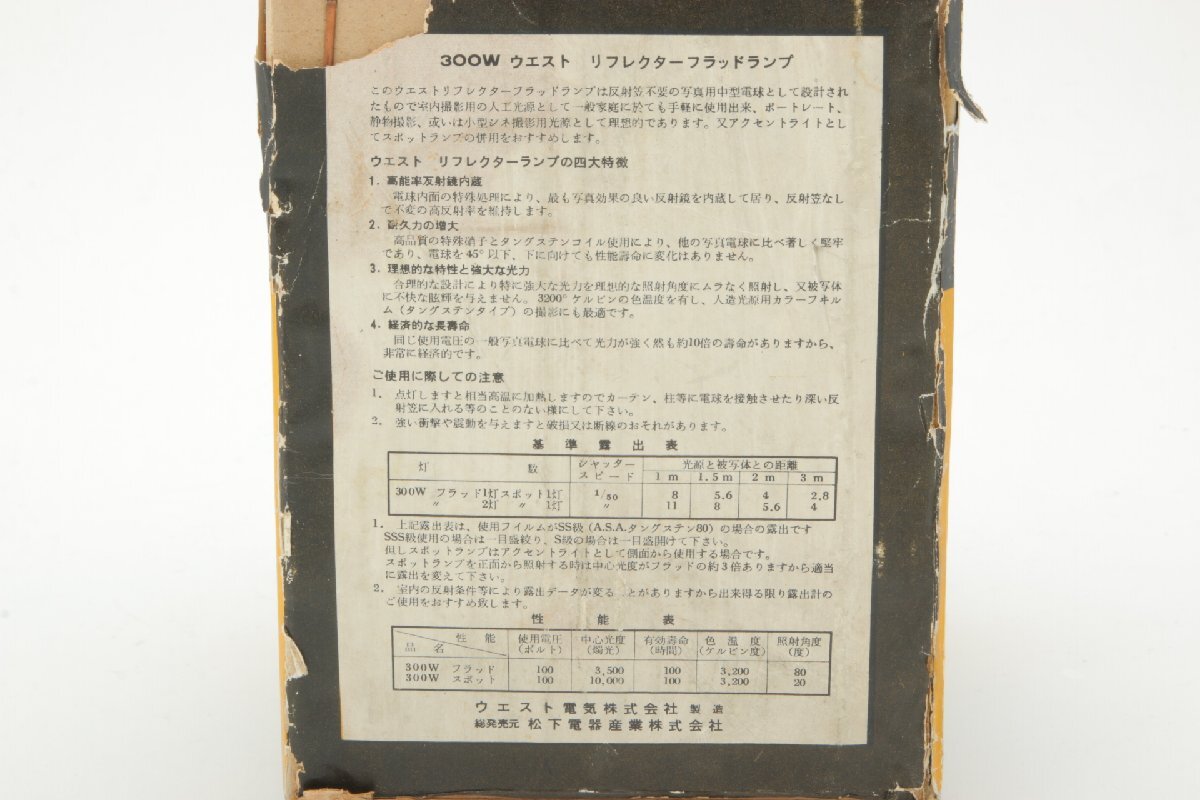 300W ウエスト リフレクターフラッドランプ
このウエストリフレクターフラッドランプは反射笠不要の写真用中型電球として設計され
たもので室内撮影用の人工光源として一般家庭に於ても手軽に使用出来、ポートレート、
静物撮影、或いは小型シネ撮影用光源として理想的であります。又アクセントライトとし
てスポットランプの併用をおすすめします。
ウエスト リフレクターランプの四大特徴
1. 高能率反射鏡内蔵
電球内面の特殊処理により、最も写真効果の良い反射鏡を内蔵して居り、反射笠なし
で不変の高反射率を維持します。
2. 耐久力の増大
高品質の特殊硝子とタングステンコイル使用により、他の写真電球に比べ著しく堅牢
であり、電球を45°以下、下に向けても性能寿命に変化はありません。
3. 理想的な特性と強大な光力
合理的な設計により特に強大な光力を理想的な照射角度にムラなく照射し、又被写体
に不快な眩輝を与えません。3200°ケルビンの色温度を有し、人造光源用カラーフヰル
ム(タングステンタイプ)の撮影にも最適です。
4. 経済的な長壽命
同じ使用電圧の一般写真電球に比べて光力が強く然も約10倍の壽命がありますから、
非常に経済的です。
ご使用に際しての注意
1. 点灯しますと相当高温に加熱しますのでカーテン、柱等に電球を接触させたり深い反
射笠に入れる等のことのない様にして下さい。
2. 強い衝撃や震動を与えますと破損又は断線のおそれがあります。
基準露出表
灯数 シャッタースピード 光源と被写体との距離
1m 1.5m 2m 3m
300W フラッド1灯スポット1灯 1/50 8 5.6 4 2.8
〃 2灯 〃 1灯 〃 11 8 5.6 4
1. 上記露出表は、使用フイルムがSS級(A.S.A.タングステン80)の場合の露出です
SSS級使用の場合は一目盛絞り、S級の場合は一目盛開けて下さい。
但しスポットランプはアクセントライトとして側面から使用する場合です。
スポットランプを正面から照射する時は中心光度がフラッドの約3倍ありますから適当
に露出を変えて下さい。
2. 室内の反射条件等により露出データが変る とがありますから出来得る限り露出計の
ご使用をおすすめ致します。
性能表
性能 使用電圧 中心光度 有効壽命 色温度 照射角度
品名 (ボルト) (燭光) (時間) (ケルビン度) (度)
300W フラッド 100 3,500 100 3,200 80
300W スポット 100 10,000 100 3,200 20
ウエスト電気株式会社 製造
総発売元 松下電器産業株式会社